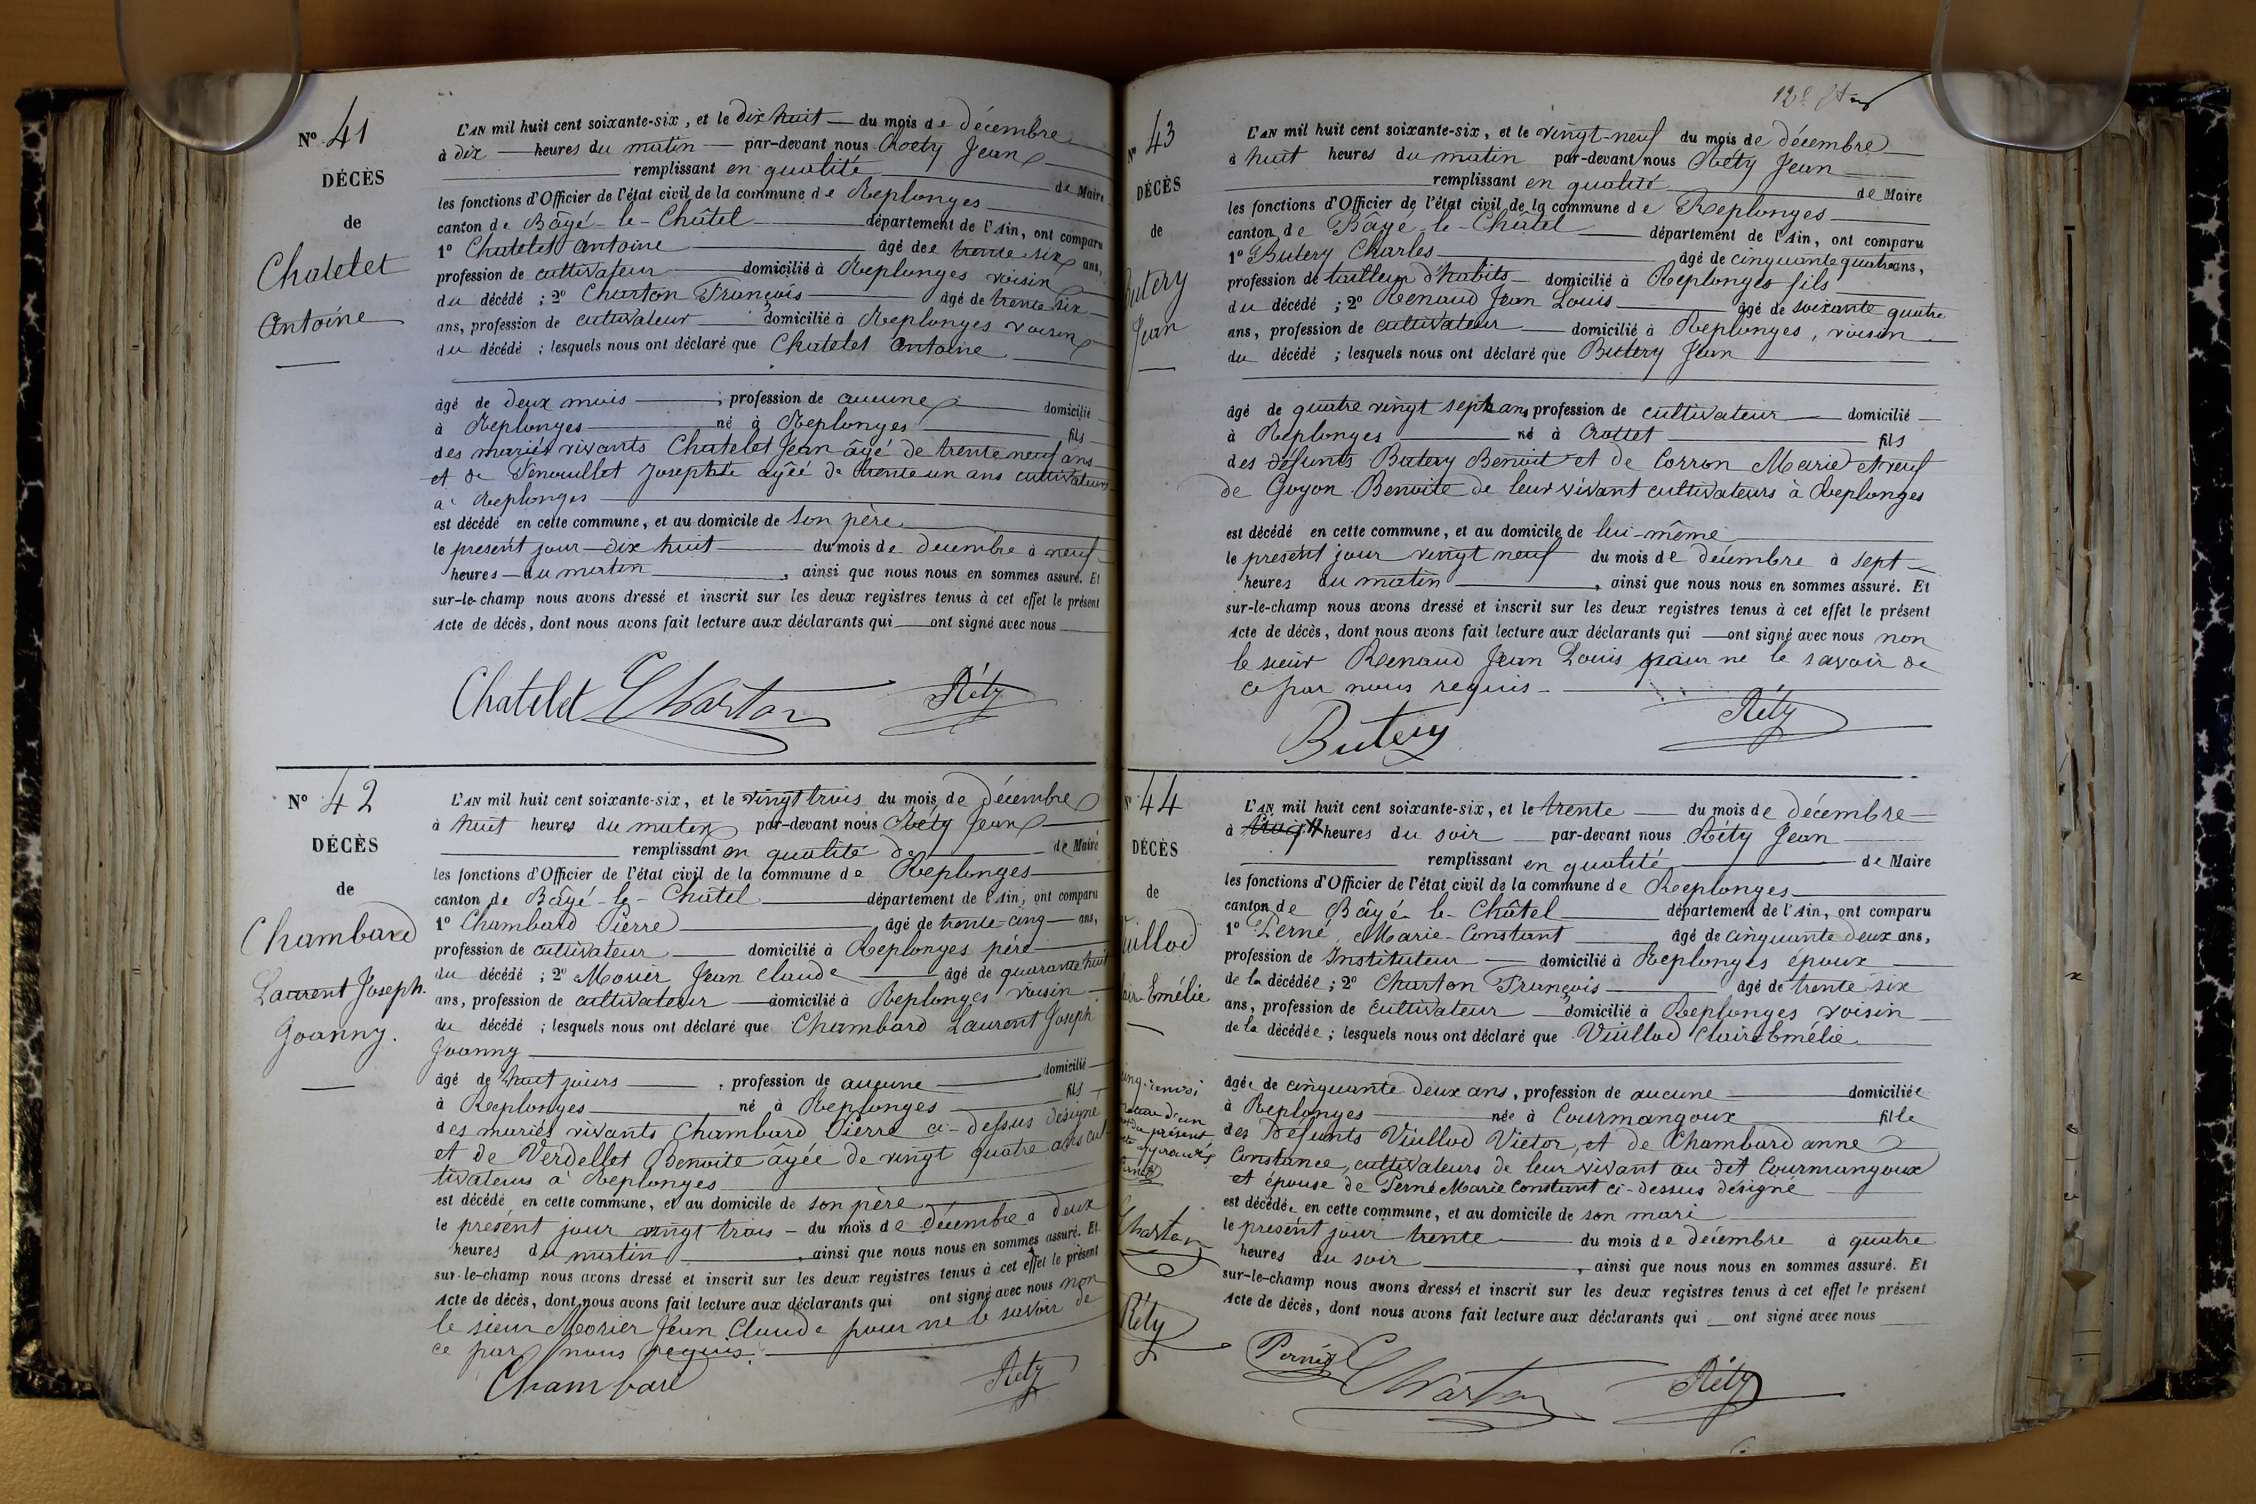 N° 41
DÉCÈS
de
Chatelet
Antoine
L'AN mil huit cent soixante-six, et le dix huit du mois de décembre
à dix heures du matin par-devant nous Réty Jean
remplissant en qualité de Maire
les fonctions d'Officier de l'état civil de la commune de Replonges
canton de Bâgé-le-Châtel département de l'Ain, ont comparu
1° Chatelet Antoine âgé de trente six ans,
profession de cultivateur domicilié à Replonges voisin
du décédé ; 2° Charton François âgé de trente six
ans, profession de cultivateur domicilié à Replonges voisin
du décédé ; lesquels nous ont déclaré que Chatelet Antoine
âgé de deux mois ; profession de aucune domicilié
à Replonges né à Replonges fils
des mariés vivants Chatelet Jean âgé de trente neuf ans
et de Josephte âgée de trente un ans cultivateurs
à Replonges
est décédé en cette commune, et au domicile de son père
le présent jour dix huit du mois de decembre à neuf
heures du matin, ainsi que nous nous en sommes assuré. Et
sur-le-champ nous avons dressé et inscrit sur les deux registres tenus à cet effet le présent
Acte de décès, dont nous avons fait lecture aux déclarants qui ont signé avec nous
Chatelet Charton Réty
N° 42
DÉCÈS
de
Chambard
Laurent Joseph.
Joanny.
L'AN mil huit cent soixante-six, et le vingt trois du mois de Décembre
à huit heures du matin par-devant nous Réty Jean
remplissant en qualité de de Maire
les fonctions d'Officier de l'état civil de la commune de Replonges
canton de Bâgé-le-Châtel département de l'Ain, ont comparu
1° Chambard Pierre âgé de trente-cinq ans,
profession de cultivateur domicilié à Replonges père
du décédé ; 2° Morier Jean Claude âgé de quarante huit
ans, profession de cultivateur domicilié à Replonges voisin
du décédé ; lesquels nous ont déclaré que Chambard Laurent Joseph
Joanny
âgé de huit jours, profession de aucune domicilié
à Replonges né à Replonges fils
des mariés vivants Chambard Pierre ci-dessus désigné
et de Verdellet Benoite âgée de vingt quatre ans cul-
tivateurs à Replonges
est décédé en cette commune, et au domicile de son père
le présent jour vingt trois du mois de Décembre à deux
heures du matin, ainsi que nous nous en sommes assuré. Et
sur-le-champ nous avons dressé et inscrit sur les deux registres tenus à cet effet le présent
Acte de décès, dont nous avons fait lecture aux déclarants qui ont signé avec nous non
le sieur Morier Jean Claude pour ne le savoir de
ce par nous requis.
Chambard Réty
N° 43
DÉCÈS
de
Butery
Jean
L'AN mil huit cent soixante-six, et le vingt-neuf du mois de décembre
à huit heures du matin par-devant nous Réty Jean
remplissant en qualité de Maire
les fonctions d'Officier de l'état civil de la commune de Replonges
canton de Bâgé-le-Châtel département de l'Ain, ont comparu
1° Butery Charles âgé de cinquante quatre ans,
profession de tailleur d'habits domicilié à Replonges fils
du décédé ; 2° Renaud Jean Louis âgé de soixante quatre
ans, profession de cultivateur domicilié à Replonges, voisin
du décédé ; lesquels nous ont déclaré que Butery Jean
âgé de quatre vingt sept ans profession de cultivateur domicilié
à Replonges né à Crottet fils
des défunts Butery Benoit et de Corron Marie et veuf
de Goyon Benoite de leur vivant cultivateurs à Replonges
est décédé en cette commune, et au domicile de lui-même
le présent jour vingt neuf du mois de décembre à sept
heures du matin, ainsi que nous nous en sommes assuré. Et
sur-le-champ nous avons dressé et inscrit sur les deux registres tenus à cet effet le présent
Acte de décès, dont nous avons fait lecture aux déclarants qui ont signé avec nous non
le sieur Renaud Jean Louis pour ne le savoir de
ce par nous requis
Butery Réty
44
DÉCÈS
de
Emélie
du présent
Charton
Réty
L'AN mil huit cent soixante-six, et le trente du mois de décembre
à heures du soir par-devant nous Réty Jean
remplissant en qualité de Maire
les fonctions d'Officier de l'état civil de la commune de Replonges
canton de Bâgé-le-Châtel département de l'Ain, ont comparu
1° Perné Marie-Constant âgé de cinquante deux ans,
profession de Instituteur domicilié à Replonges époux
de la décédée ; 2° Charton François âgé de trente six
ans, profession de cultivateur domicilié à Replonges voisin
de la décédée ; lesquels nous ont déclaré que Viullod Claire Emélie
âgée de cinquante deux ans, profession de aucune domiciliée
à Replonges née à Courmangoux fille
des Défunts Viullod Victor, et de Chambard anne
Constance, cultivateurs de leur vivant au dit Courmangoux
et épouse de Perné Marie Constant ci-dessus désigné
est décédée en cette commune, et au domicile de son mari
le présent jour trente du mois de décembre à quatre
heures du soir, ainsi que nous nous en sommes assuré. Et
sur-le-champ nous avons dressé et inscrit sur les deux registres tenus à cet effet le présent
Acte de décès, dont nous avons fait lecture aux déclarants qui ont signé avec nous
Perné Charton Réty